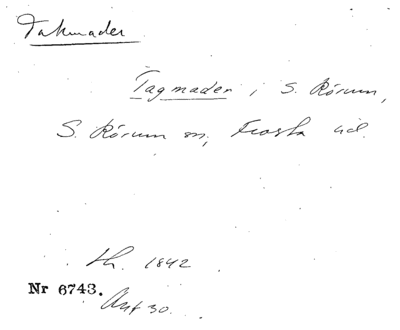 Takmader
Tagmader i S. Rörum,
S. Rörum sn, Frosta hd.
th. 1842
Nr 6743.
30.